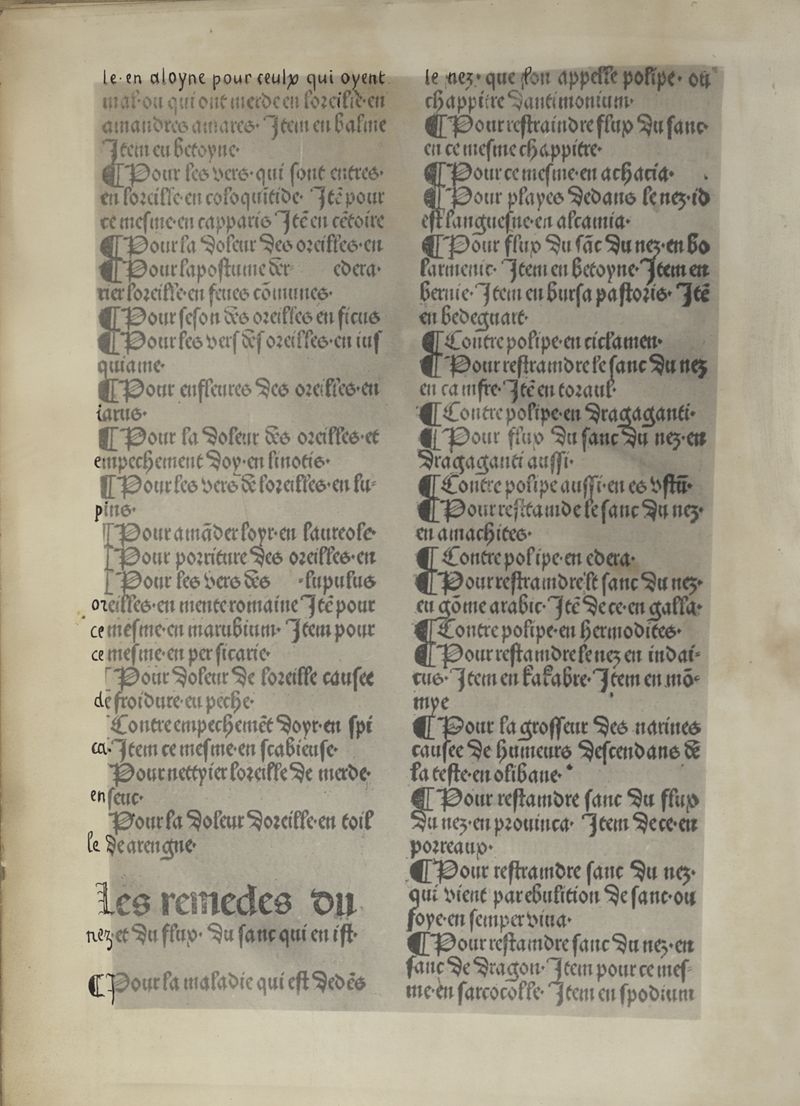 le·en aloyne pour ceulx qui oyent
mal·ou qui ont merde en loreille·en
amandres amares· Item en balme
Item en betoyne·
¶ Pour les vers· qui sont entres·
en loreille·en coloquitide· Itē pour
ce mesme·en capparis Itē en cētoire
¶ Pour la doleur des oreilles·en
¶ Pour lapostume der edera·
rier loreille·en feues cōmunes·
¶ Pour le son des oreilles·en ficus
¶ Pour les vers des oreilles·en ius
quiame·
¶ Pour enfleures des oreilles·en
iarus·
¶ Pour la doleur des oreilles·et
empechement doy·en linotis·
¶ Pour les vers de loreilles·en lu-
pins·
Pour amāder loyr·en laureole·
Pour porriture des oreilles·en
Pour les vers des ·lupulus
oreilles·en mente romaine Itē pour
ce mesme·en marubium· Item pour
ce mesme·en persicarie·
Pour doleur de loreille causee
de froidure·en peche·
Contre empechemēt doyr·en spi
ca·Item ce mesme·en scabieuse·
Pour nettyier loreille de merde·
en seuc·
Pour la doleur doreille·en toil
le de arengne·
Les remedes du
nez·et du flux· du sanc qui en ist·
¶ Pour la maladie qui est dedēs
le nez· que lon appelle polipe· ou
chappitre dantimonium·
¶ Pour restraindre flux du sanc·
en ce mesme chappitre·
¶ Pour ce mesme·en achacia·
¶ Pour playes dedans le nez·id
est languesne·en alcamia·
¶ Pour flux du sāc du nez·en bo
larmenic· Item en betoyne·Item en
bernie·Item en bursa pastoris· Itē
en bedeguart·
¶ Contre polipe·en ciclamen·
¶ Pour restramdre le sanc du nez
en camfre·Itē en toraul·
¶ Contre polipe·en dragaganti·
¶ Pour flux du sanc du nez·en
dragaganti aussi·
¶ Contre polipe aussi·en es vstū·
¶ Pour restramde le sanc du nez·
en amachites·
¶ Contre polipe·en edera·
¶ Pour restramdre le sanc du nez·
en gōme arabic· Itē de ce·en galla·
¶ Contre polipe·en hermodites·
¶ Pour restamdre le nez en indai-
cus· Item en kakabre·Item en mō-
mye
¶ Pour la grosseur des narines
causee de humeurs descendans de
la teste·en olibane·
¶ Pour restamdre sanc du flux
du nez·en prouinca· Item de ce·en
porreaux·
¶ Pour restramdre sanc du nez·
qui vient par ebulition de sanc·ou
foye·en semper viua·
¶ Pour restamdre sanc du nez·en
sanc de dragon·Item pour ce mes-
me·en sarcocolle· Item en spodium